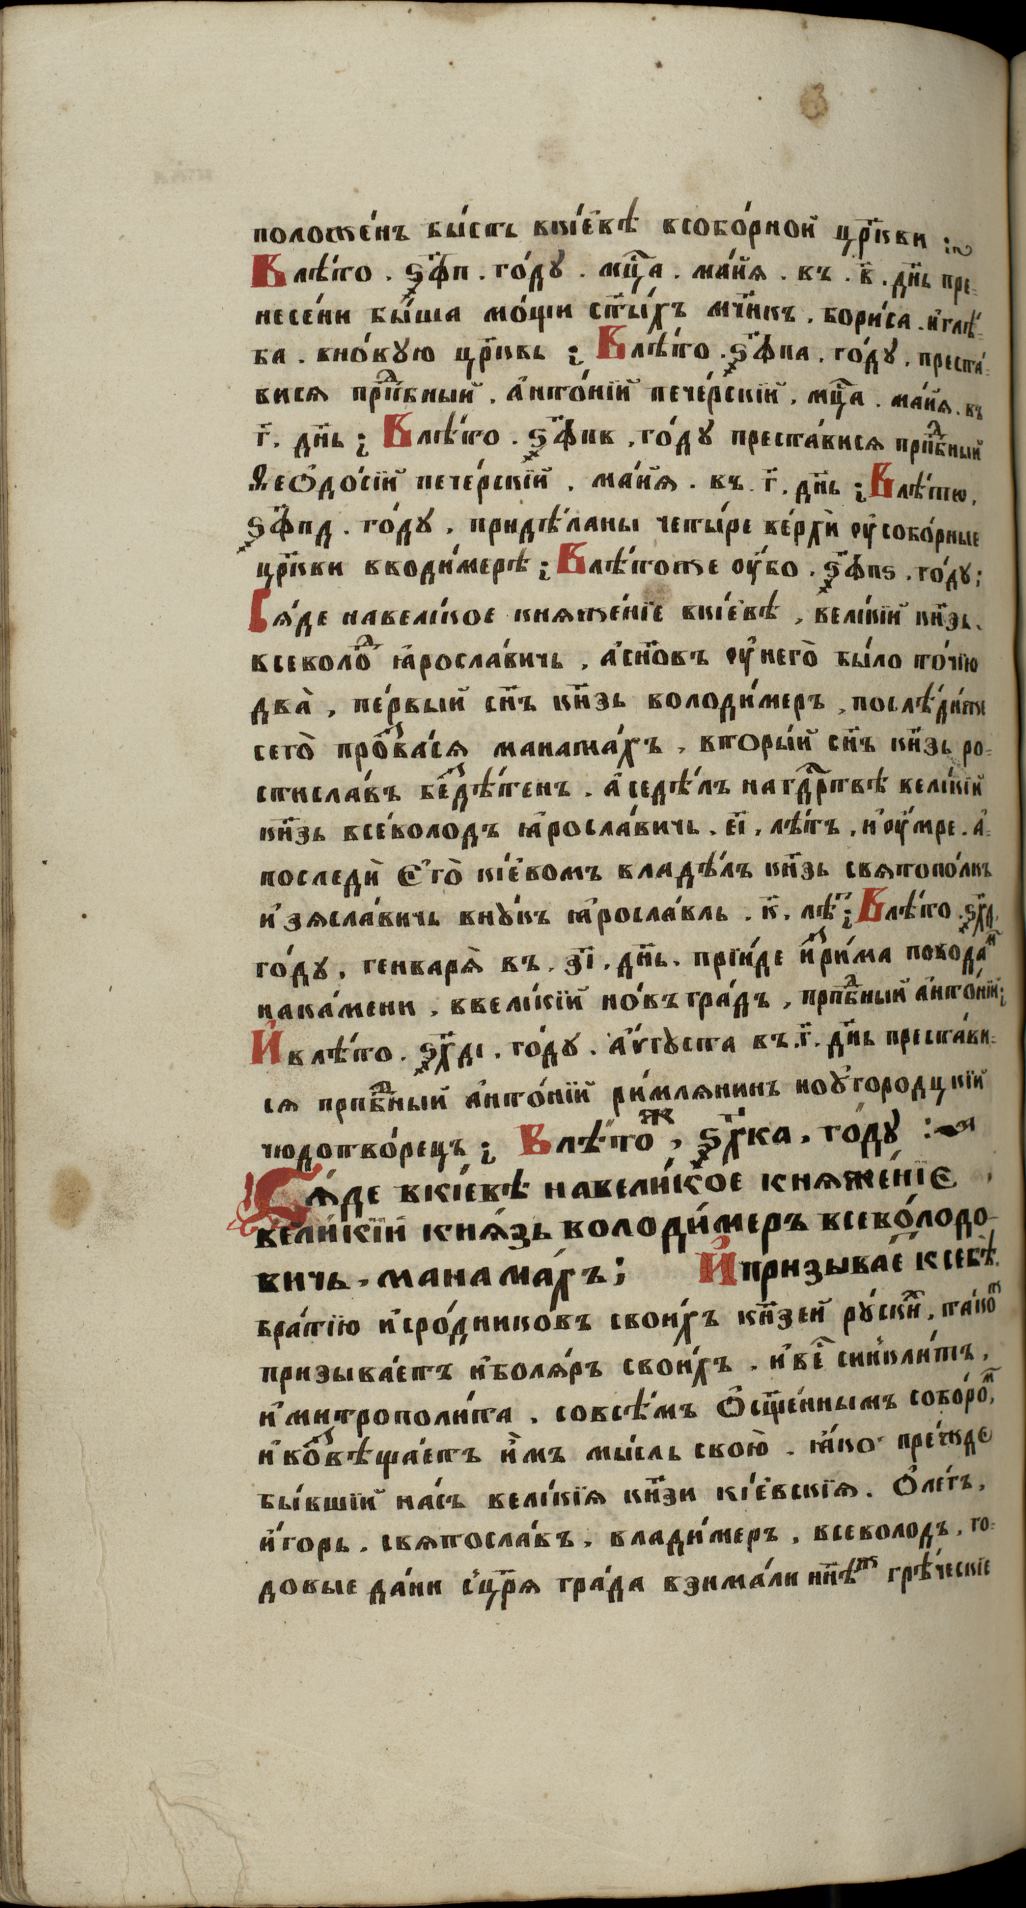 положе́нъ бы́сть вкі́евѣ всобо́рной цр҃кви :~
Влѣ́то . ѕ҂фп . го́ду . мц҃а . ма́йя . въ . в҃ . дн҃ь пре-
несе́ни бы́ша мо́щи ст҃ы́хъ мч҃нкъ . бори́са . иглѣ́-
ба . вно́вую цр҃ковь ; Влѣ́то . ѕ҂фпа . го́ду , преста́-
вися прпⷣбный . а҆нто́нїй пече́рскїй , мц҃а . ма́йя . въ
г҃ . дн҃ь ; Влѣ́то . ѕ҂фпв , го́ду преста́вися прпⷣбный
Ѳеѻдо́сїй пече́рскїй . ма́йя . въ . г҃ . дн҃ь ; Влѣ́то ,
ѕ҂фпд . го́ду , придѣ́ланы четы́ре ве́рхи ᲂу҆собо́рные
цр҃кви вводи́мерѣ ; Влѣ́тоже ᲂу҆́бо . ѕ҂фпѕ . го́ду ;
Ся́де навели́кое княже́нїе вкі́евѣ , вели́кїй кн҃зь .
всеволоⷣ ꙗ҆росла́вичь , а҆сн҃овъ ᲂу҆него̀ бы́ло то́чїю
два̀ , пе́рвый сн҃ъ кн҃зь володи́меръ , послѣ́диже
сего̀ проⷥва́ся манама́хъ , вторы́й сн҃ъ кн҃зь ро-
стисла́въ беⷥдѣ́тенъ . а҆седѣ́лъ нагдⷭ҇рствѣ вели́кїй
кн҃зь все́володъ ꙗ҆росла́вичь . е҃і . лѣ́тъ , и҆ᲂу҆́мре . а҆-
последѝ є҆го̀ кі́евомъ владѣ́лъ кн҃зь святопо́лкъ
и҆зясла́вичь вну́къ ꙗ҆росла́вль . к҃ . лѣⷮ ; Влѣ́то . ѕ҂хд
го́ду , генваря̀ въ . з҃і . дн҃ь . прїи́де иⷥри́ма по вода́ⷨ
нака́мени , ввели́кїй но́въгра́дъ , прпⷣбный а҆нто́нїй ;
И҆влѣ́то . ѕ҂хдı . го́ду . а҆́ѵгуста въ . г҃ . дн҃ь преста́ви-
ся прпⷣбный а҆нто́нїй ри́млянинъ ноугородцкїй
чюдотво́рецъ ; Влѣ́тоⷤ , ѕ҂хка . го́ду :~
Ся́де вкі́евѣ навели́кое княже́нїе
вели́кїй кня́зь володи́меръ всево́лодо-
вичь , манама́хъ ; И҆призыва́е ксебѣ̀
бра́тїю и҆сро́дниковъ свои́хъ кн҃зей ру́скиⷯ , та́коⷤ
призыва́етъ и҆боля́ръ свои́хъ . и҆ве́сⷭ҇ синкли́тъ ,
и҆митрополи́та . совсѣ́мъ ѻ҆сщ҃е́ннымъ собо́роⷨ ,
и҆воⷥвѣща́етъ и҆̀мъ мы́сль свою̀ . ꙗ҆́ко пре́жде
бы́вшїй на́съ вели́кїя кн҃зи кі́евскїя . Ѻ҆ле́гъ ,
и҆́горь . святосла́въ . влади́меръ , всеволодъ , го-
довые да́ни сцр҃я гра́да взима́ли нн҃ѣⷤ грѣ́ческїе